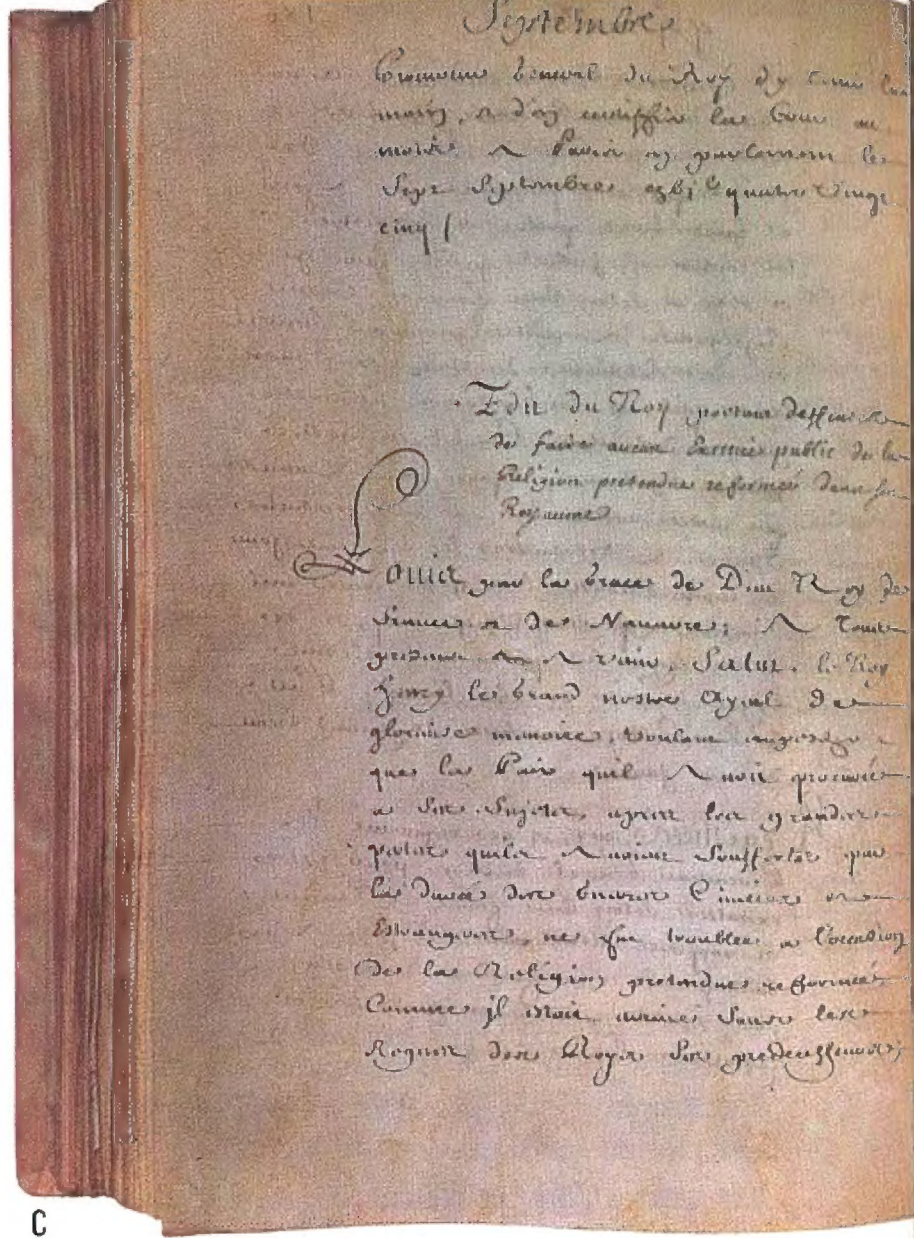 Septembre
Procureur General du Roy d'y tenir la
main, & d'en certiffier la Cour au
mois. A Paris en parlement le
Sept Septembre gbjc quatre Vingt
cinq /
Edit du Roy portant deffenses
de faire aucun Exercice public de la
Religion pretendue reformée dans son
Royaume
Louis par la Grace de Dieu Roy de
France et de Navarre; A Tous
presens et A venir, Salut. le Roy
Henry le Grand nostre Ayeul de
glorieuse memoire, Voulant empescher
que la Paix quil Avoit procurée
a Ses Sujets, apres les grandes
pertes quils Avoient Souffertes par
la durée des Guerres Civiles et
Estrangeres, ne fut troublée a l'occasion
de la Religion pretendue reformée
Comme jl estoit arrivé Sous les
Regnes des Roys Ses predecesseurs,
C